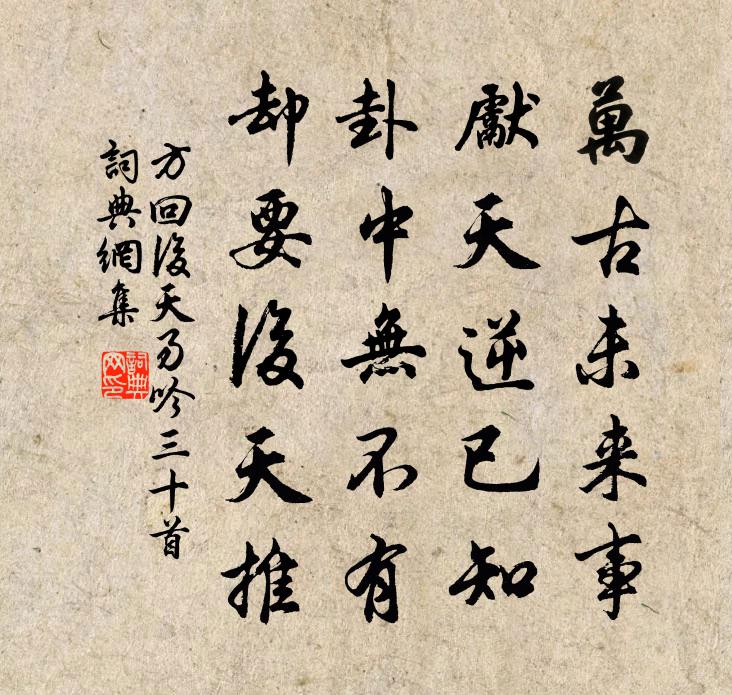 萬古未来事
獻天逆已知
卦中無不有
却要後天推
方回後天易吟三十首
詞典網集
詞典网印